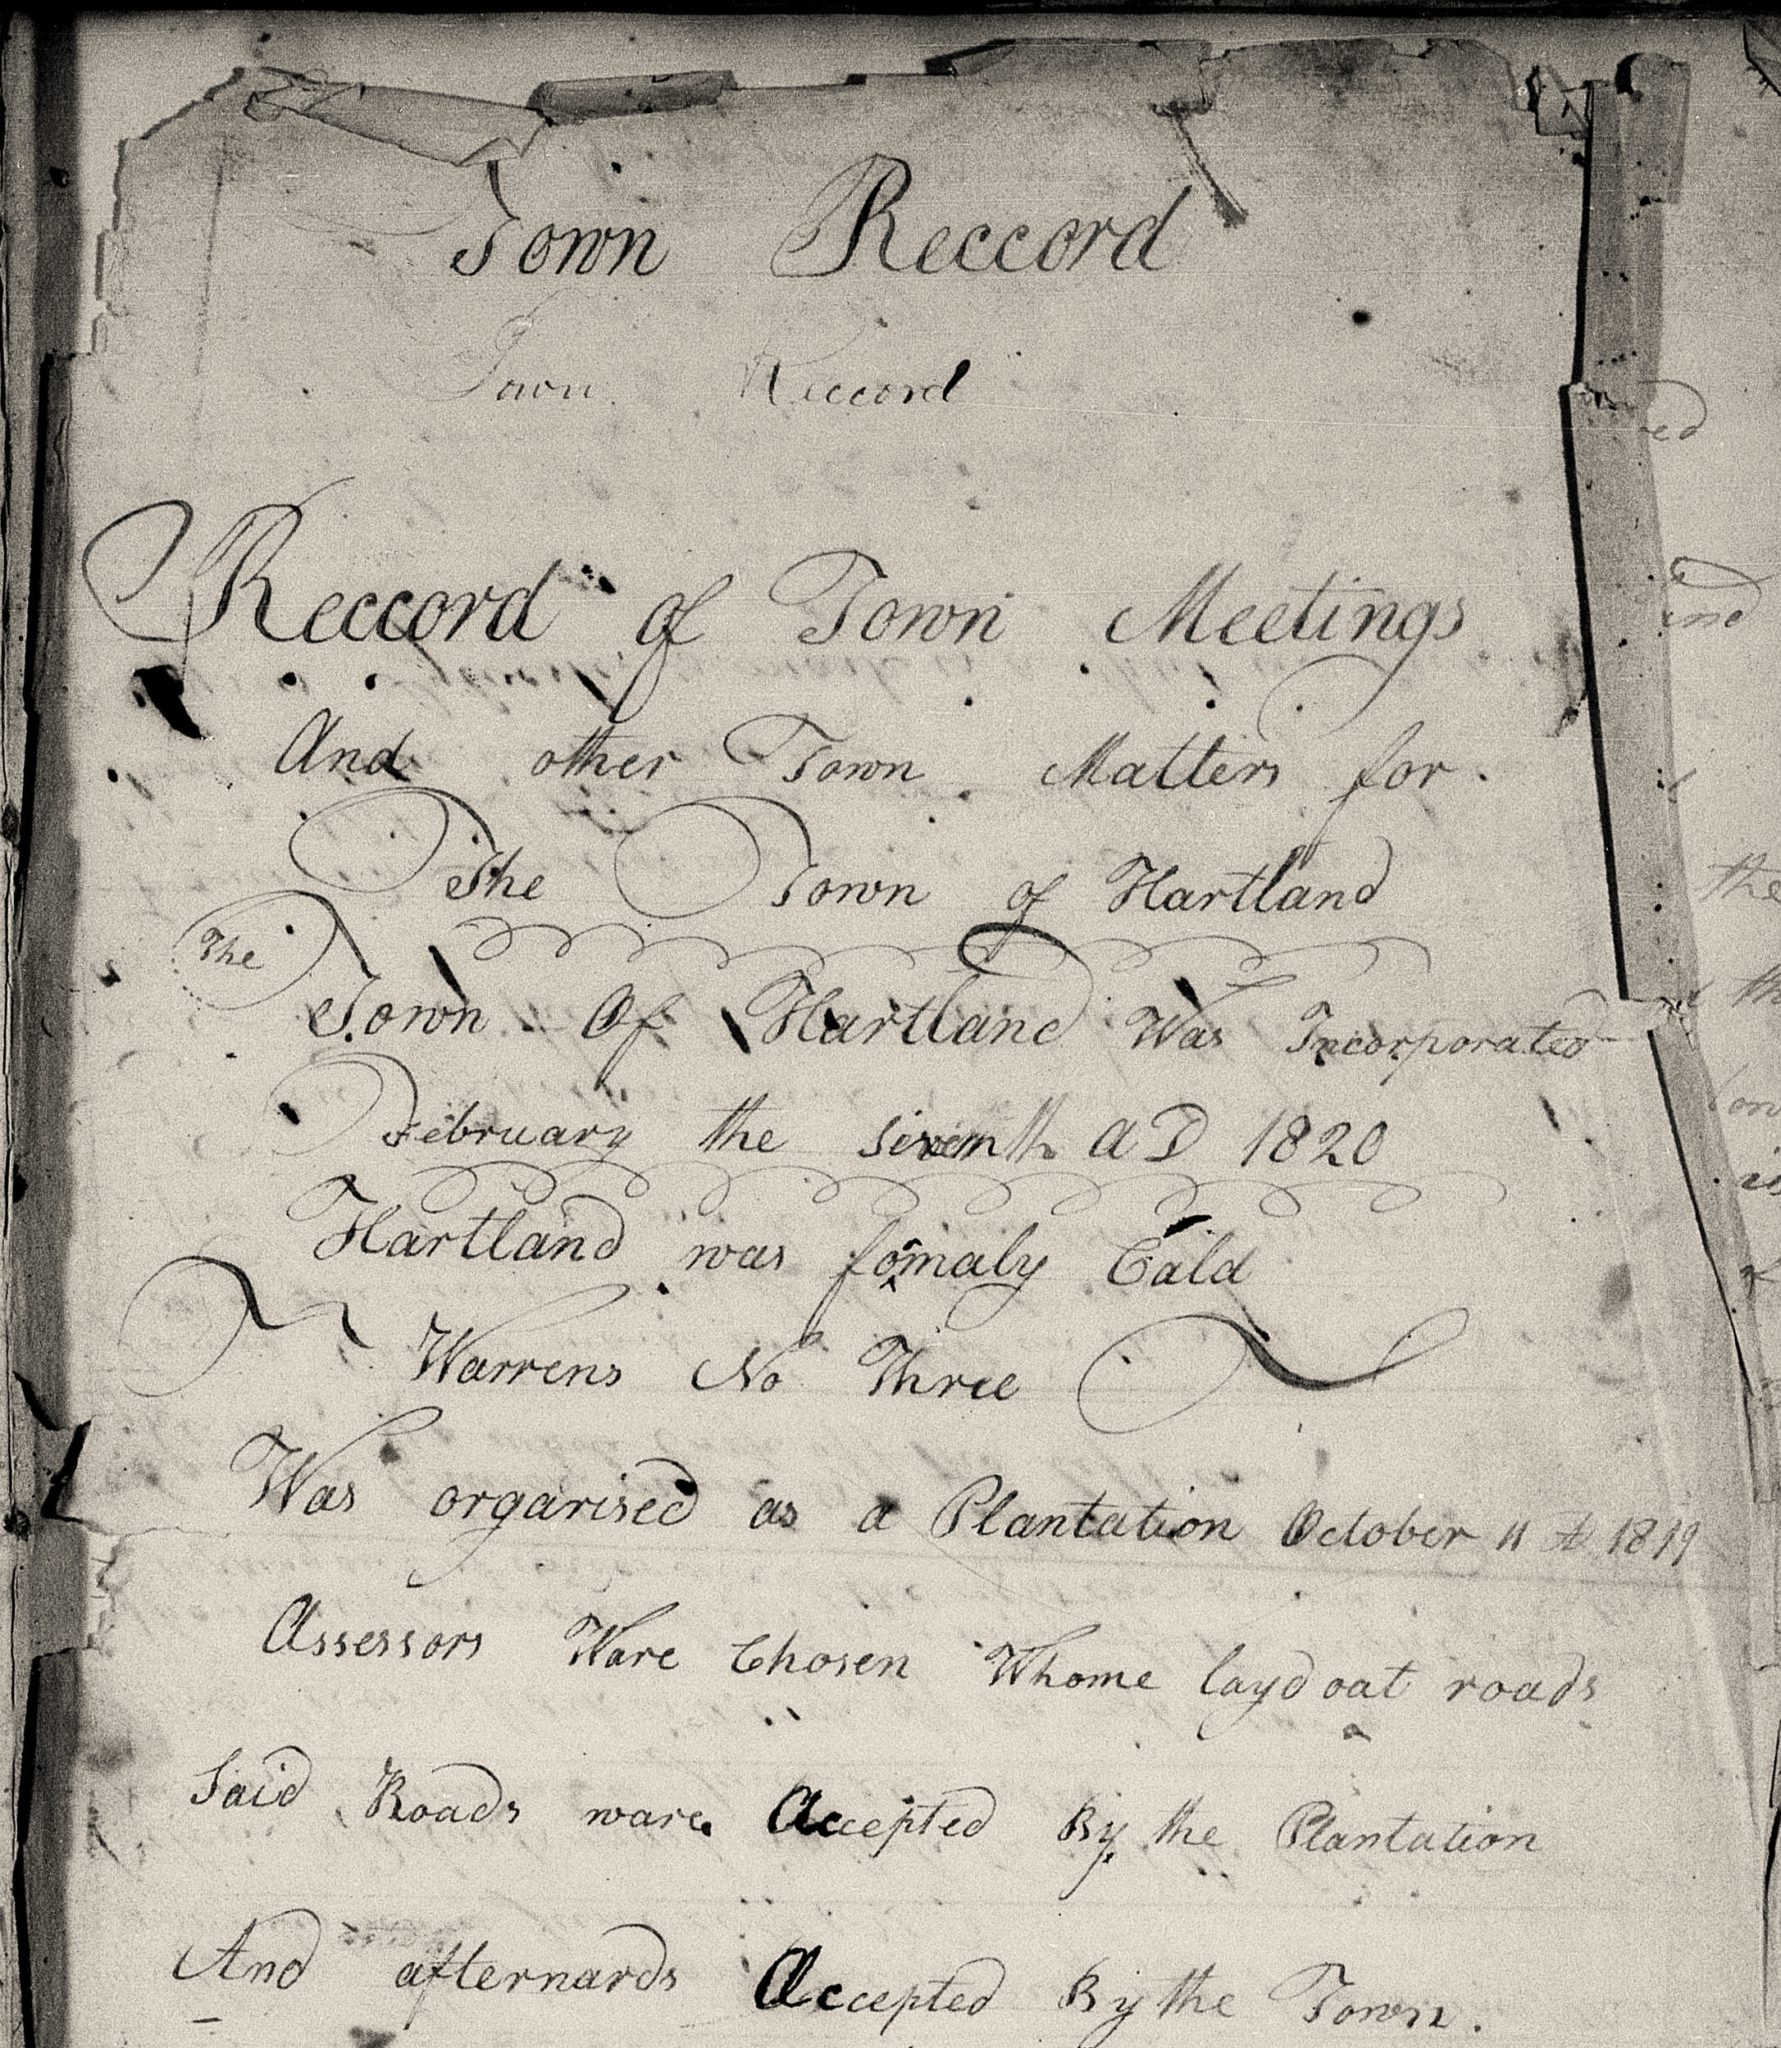 Town Reccord
Town Reccord
Reccord of Town Meetings
And other Town Matters for.
The Town of Hartland
The
Town Of Hartland Was Incorporated
February the seventh A D 1820
Hartland was fomaly Cald
Warrens No Three
Was organised as a Plantation October 11 A 1819
Assessors Ware Chosen Whome layd out roads
Said Roads ware Accepted By the Plantation
And afterwards Accepted By the Town.